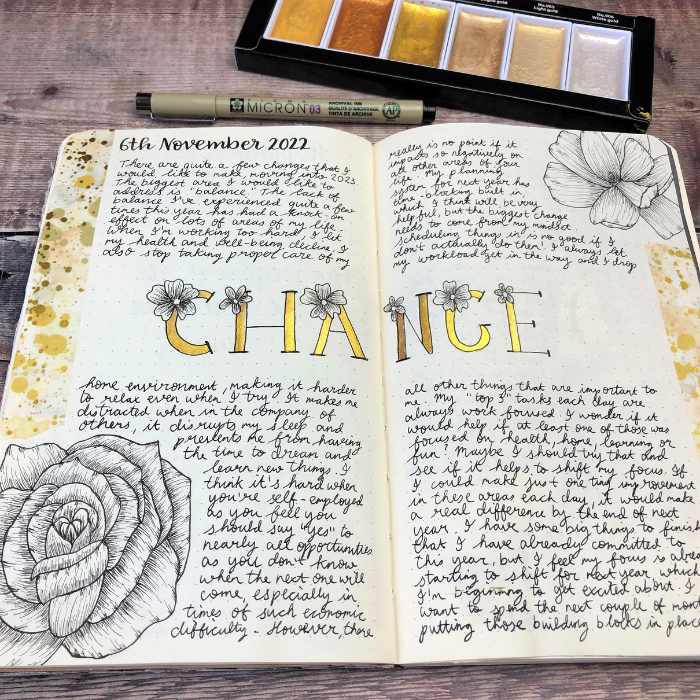 No.905
Light gold
No.906
White gold
MICRON 03
ARCHIVAL INK
QUALITÉ D'ARCHIVAGE
TINTA DE ARCHIVO
AP
6th November 2022
There are quite a few changes that I
would like to make, moving into 2023
The biggest area I would like to
address is "balance". The lack of
balance I've experienced quite a few
times this year has had a knock-on
effect on lots of areas of my life.
When I'm working too hard, I let
my health and well-being decline, I
also stop taking proper care of my
CHANGE
home environment, making it harder
to relax even when I try. It makes me
distracted when in the company of
others, it disrupts my sleep and
prevents me from having
the time to dream and
learn new things. I
think it's hard when
you're self-employed
as you feel you
should say "yes" to
nearly all opportunities
as you don't know
when the next one will
come, especially in
times of such economic
difficulty. However, there
really is no point if it
impacts so negatively on
all other areas of your
life. My planning
system for next year has
time-blocking built in
which I think will be very
helpful, but the biggest change
needs to come from my mindset
scheduling things in is no good if I
don't actually do them! I always let
my workload get in the way and I drop
all other things that are important to
me. My "top 3" tasks each day are
always work focused. I wonder if it
would help if at least one of those was
focused on health, home, learning or
fun? Maybe I should try that and
see if it helps to shift my focus. If
I could make just one tiny improvement
in these areas each day, it would make
a real difference by the end of next
year. I have some big things to finish
that I have already committed to
this year, but I feel my focus is alrea
starting to shift for next year which
I'm beginning to get excited about. I
want to spend the next couple of mon
putting those building blocks in place